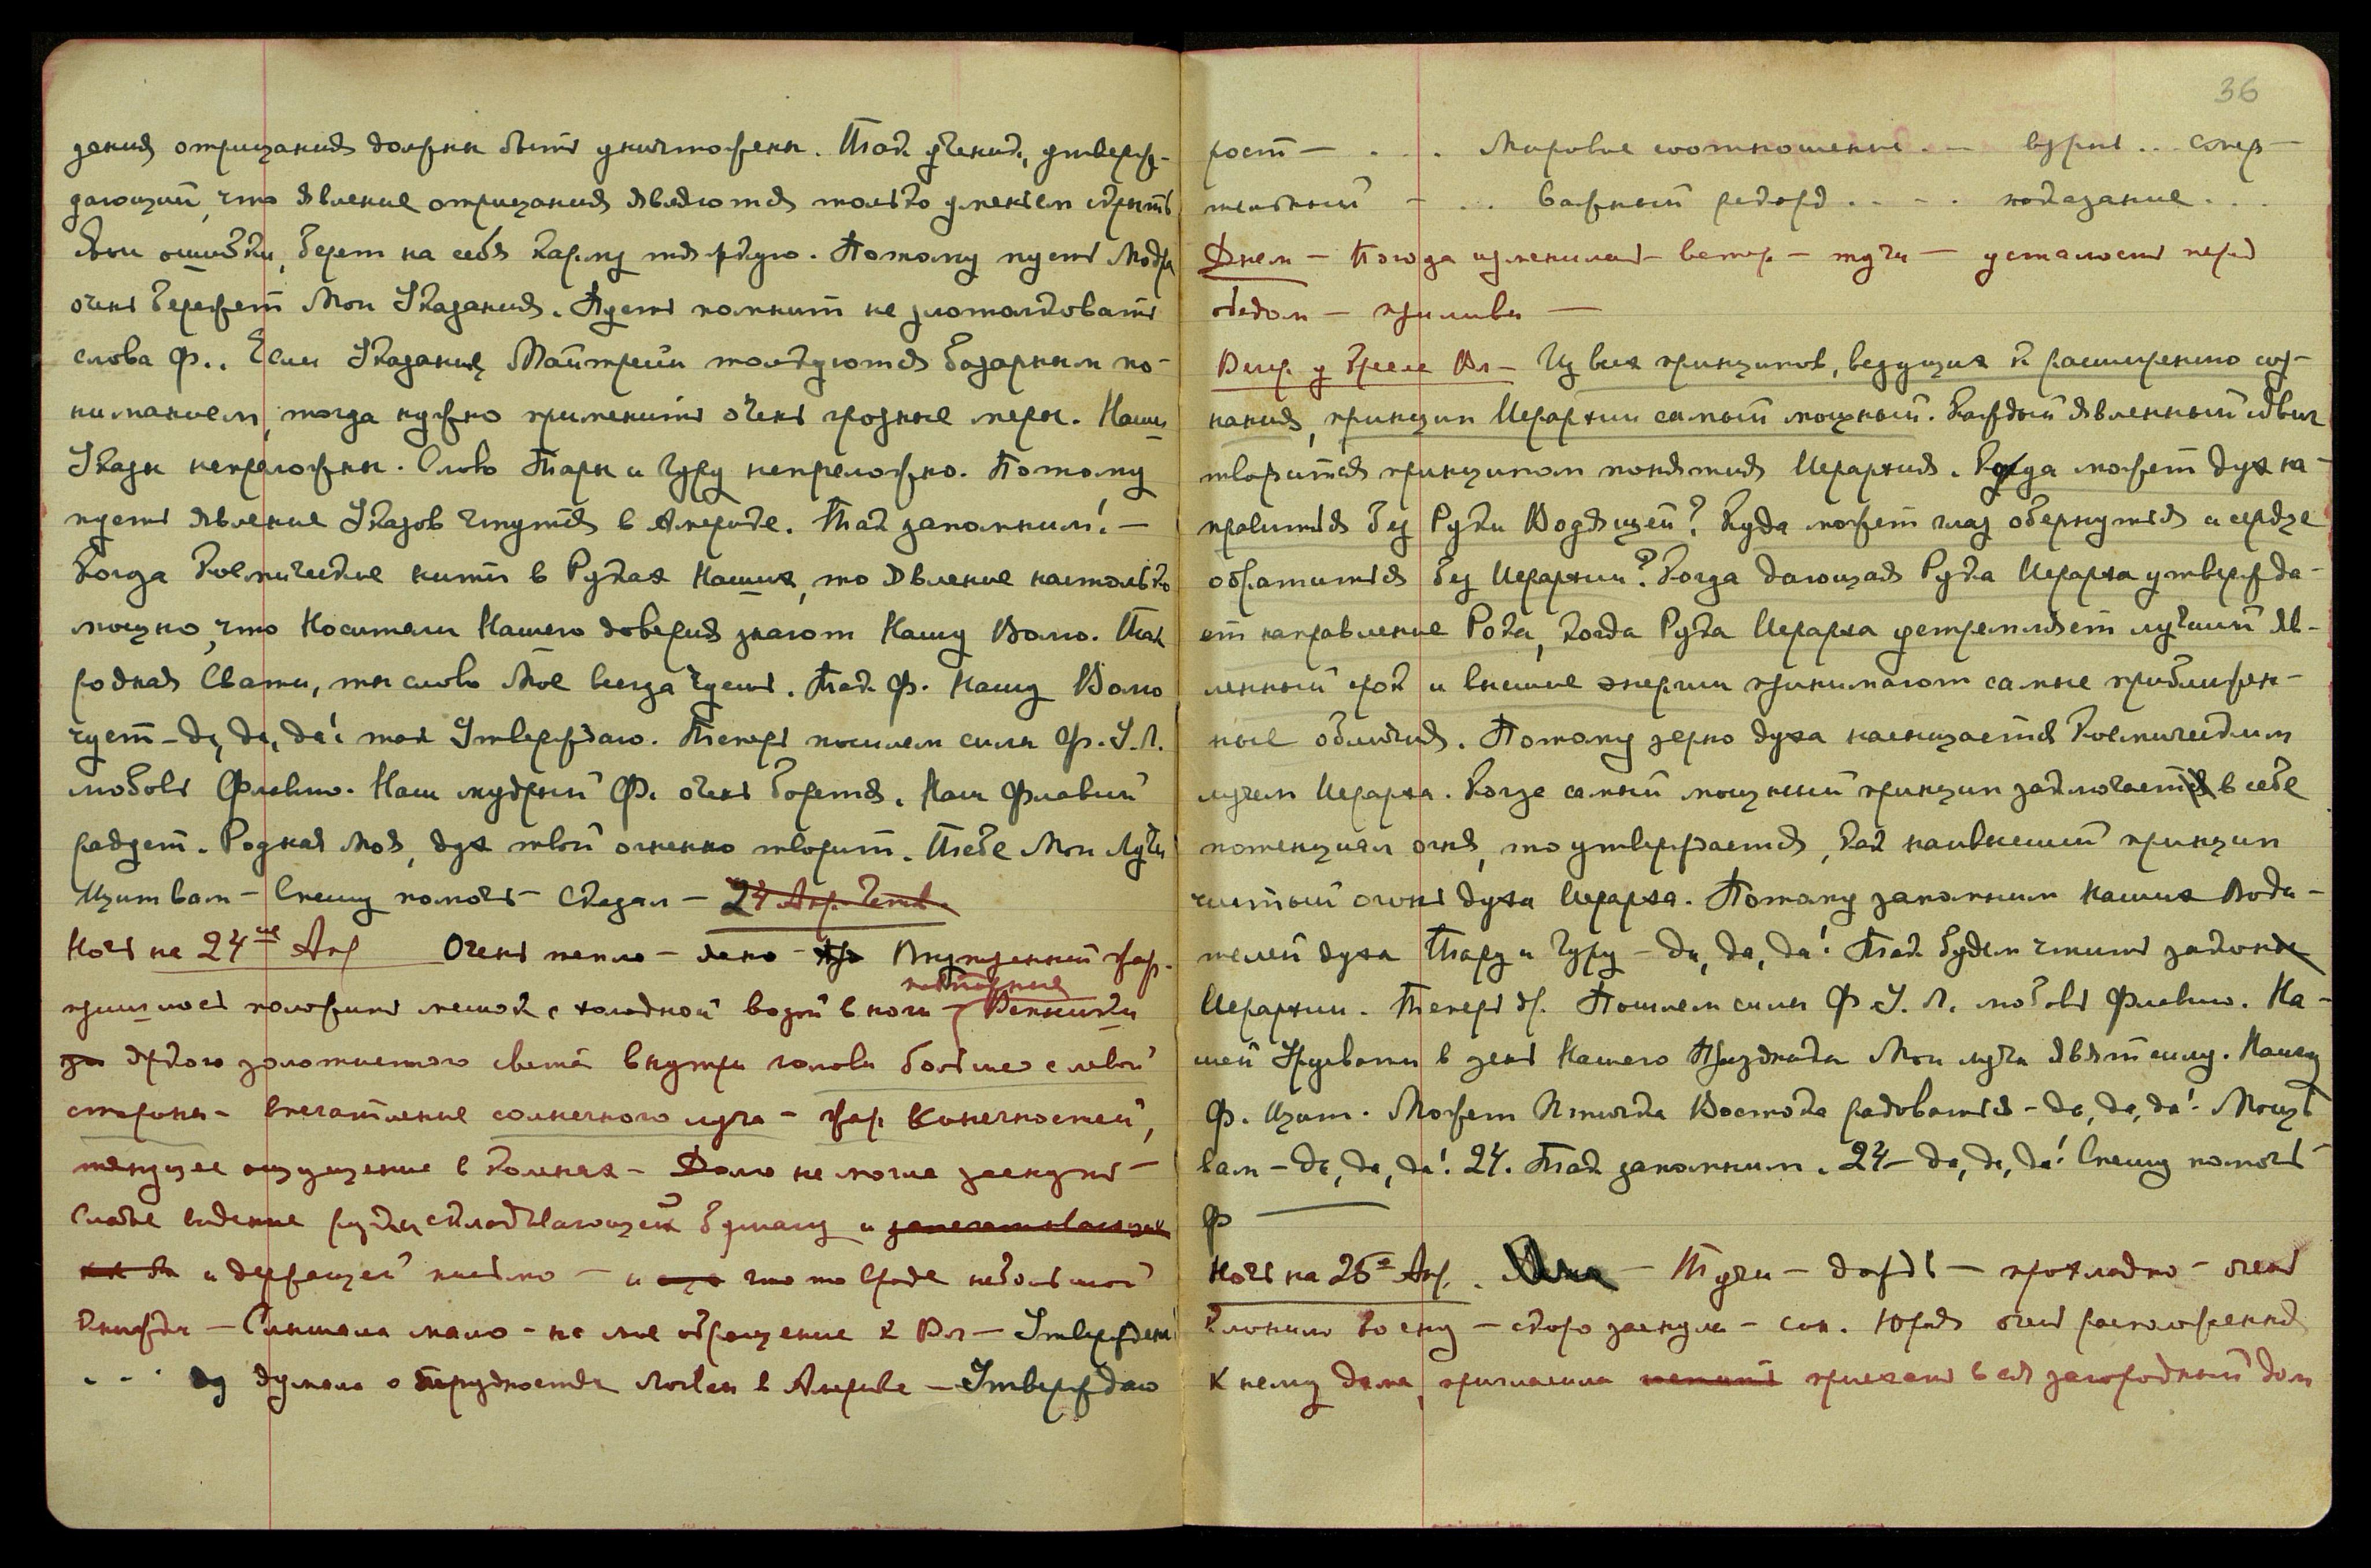 дания отрицания должны быть уничтожены. Так ученик, утверж-
дающий, что явление отрицания являются только умением скрыть
свои ошибки, берет на себя карму тяжкую. Потому пусть Модра
очень бережет Мои Указания. Пусть помнит не злотолковать
слова Ф.. Если Указания Майтрейи толкуются базарным по-
ниманием, тогда нужно применить очень грозные меры. Наши
Указы непреложны. Слово Тары и Гуру непреложно. Потому
пусть явление Указов чтутся в Америке. Так запомним! —
Когда Космические нити в Руках Наших, то Явление настолько
мощно, что Носители Нашего доверия знают Нашу Волю. Так
родная Свати, ты слово Мое всегда чуешь. Так Ф. Нашу Волю
чует – да, да, да! так Утверждаю. Теперь пошлем силы Ф. У. Л.
любовь Флавию. Наш мудрый Ф. очень борется. Наш Флавий
радует. Родная Моя, дух твой огненно творит. Тебе Мои Лучи
Щит вам – Спешу помочь – Сказал – 24 Апр. Четв.
Ночь на 24ое Апр Очень тепло – ясно – Внутренний жар.
пришлось положить мешок с холодной водой в ноги – повторные Вспышки
яркого золотистого света внутри головы больше с левой
стороны – впечатление солнечного луча – жар конечностей,
тянущее ощущение в коленях – Долго не могла заснуть –
Слабое видение руки, складывающей бумагу и запечатывающая
как бы и держащей письмо – и что то вроде небольшой
книжки – Слышала мало – на мое обращение к Вл – Утвержден
. . . думала о трудностях Логван в Америке – Утверждаю
36
рост – . . . Мировые соотношение . – . . .
. . важный рекорд . . – . показание . . .
Днем – Погода изменилась – ветер – тучи – усталость перед
обедом – приливы —
Вечер у Кресле Вл – Из всех принципов, ведущих к расширению соз-
нания, принцип Иерархии самый мощный. Каждый явленный сдвиг
творится принципом понятия Иерархия. Куда может дух на-
правиться без Руки Водящей? Куда может глаз обернуться и сердце
обратиться без Иерархии? Когда дающая Рука Иерарха утвержда-
ет направление Рока, когда Рука Иерарха устремляет лучший яв-
ленный срок и высшие энергии принимают самые приближен-
ные обличия. Потому зерно духа насыщается Космическим
лучом Иерарха. Когда самый мощный принцип заключается в себе
потенциал огня, то утверждается, как наивысший принцип
чистый огонь духа Иерарха. Потому запомним Наших Води-
телей духа Тару и Гуру – Да, да, да! Так будем чтить закон
Иерархии. Теперь др. Пошлем силы Ф. У. Л. любовь Флавию. На-
шей Урусвати в день Нашего Праздника Мои лучи явят силу. Нашему
Ф. Щит. Может Птичка Востока радоваться – да, да, да! Мощь
вам – да, да, да! 24. Так запомним. 24 – да, да, да! Спешу помочь –
Ф —
Ночь на 25е Апр. – Тучи – дождь – прохладно – очень
клонило ко сну – скоро заснула – сон. Юрия очень расположенная
к нему дама, пригласила приехать в ея загородный дом